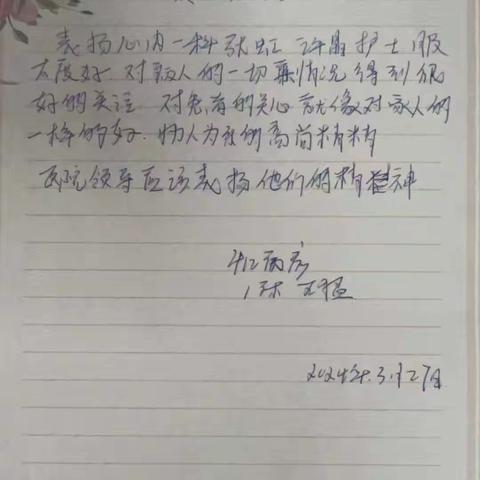 表扬心内一科张虹 许晶护士 服
太度好 对病人的一切病情况得到很
好的关注 对患者的关心就像对家人的
一样的好. 为人的高尚精神
医院领导应该表扬他们的精神
412病房
1床 王猛
2024年.3月27日